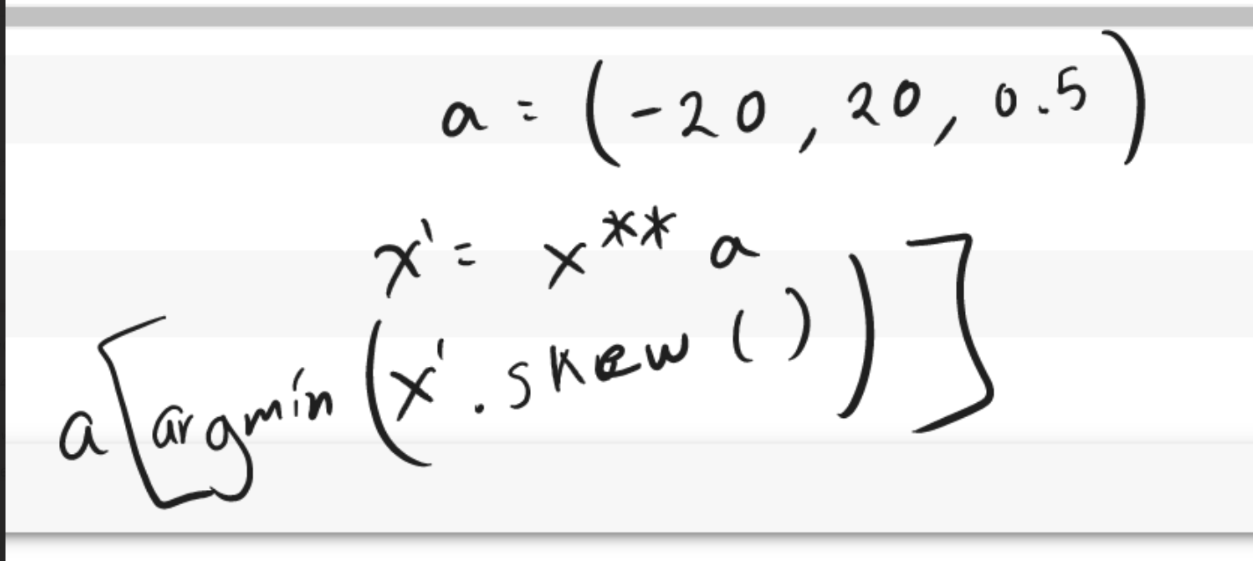 a = (-20, 20, 0.5)
x' = x ** a
a[argmin(x'.skew())]